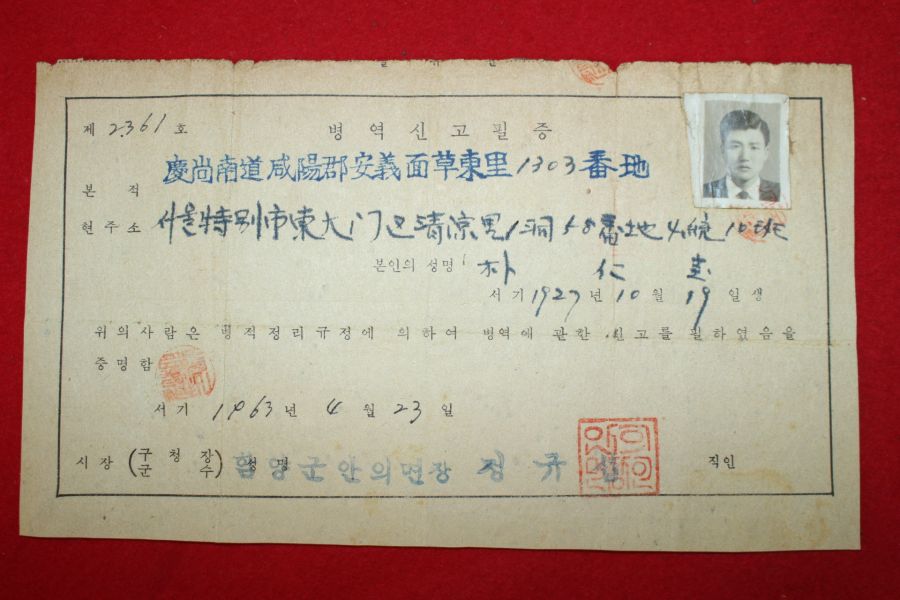 제 2361 호 병역신고필증
본적 慶尚南道咸陽郡安義面草東里1303番地
현주소 서울特別市東大门区清凉里1洞58番地4统10班
본인의 성명 朴仁圭
서기 1927년 10월 19일생
위의 사람은 병적정리규정에 의하여 병역에 관한 신고를 필하였음을
증명함
서기 1963년 4월 23일
시장 (구청장 군수) 성명 함양군안의면장 정규 직인